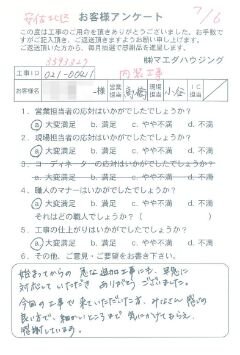 安佐北区 お客様アンケート 7/6
この度は工事のご用命を頂きありがとうございました。お手数で
すがご記入頂き、ご返送頂きますようお願い申し上げます。
ご返送頂いた方から、毎月抽選で感謝品を進呈します。
㈱マエダハウジング
工事ID 021-00411 内装工事
お客様名 -様 営業担当 高橋 現場担当 小谷 IC担当
1. 営業担当者の応対はいかがでしたでしょうか?
a.大変満足 b.満足 c.やや不満 d.不満
2. 現場担当者の応対はいかがでしたでしょうか?
a.大変満足 b.満足 c.やや不満 d.不満
3. コーディネーターの応対はいかがでしたでしょうか?
a.大変満足 b.満足 c.やや不満 d.不満
4. 職人のマナーはいかがでしたでしょうか?
a.大変満足 b.満足 c.やや不満 d.不満
それはどの職人でしょうか?( )
5. 工事の仕上がりはいかがでしたでしょうか?
a.大変満足 b.満足 c.やや不満 d.不満
6. その他、ご意見・ご要望をお書き下さい。
始まってからの 急な追加工事にも、早急に
対応していただき ありがとうございました。
今回の工事で来ていただいた方、みなさん感じの
良い方で、細かいところまで 気にかけてもらえ、
感謝しています。